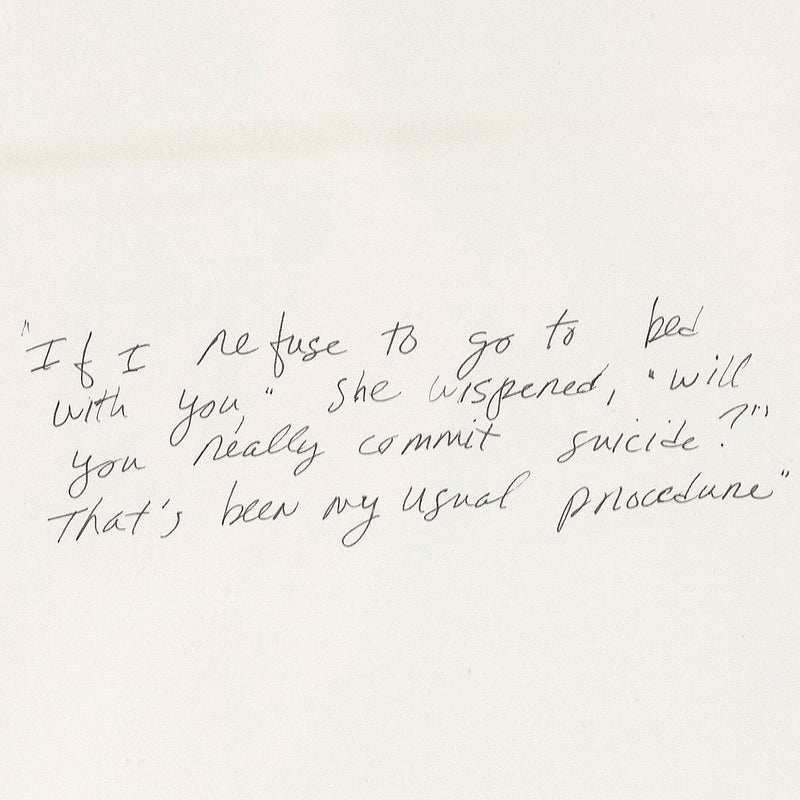 "If I refuse to go to bed
with you," she wispered, "will
you really commit suicide?"
That's been my usual procedure"